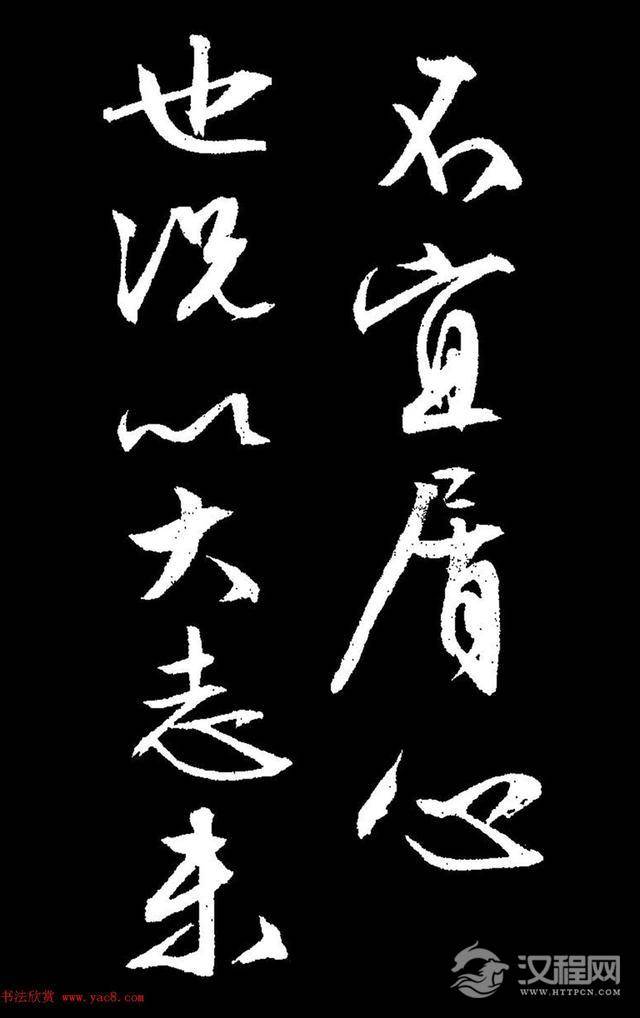 不宜屑心
也况以大志未
书法欣赏 www.yac8.com
汉程网
WWW.HTTPCN.COM